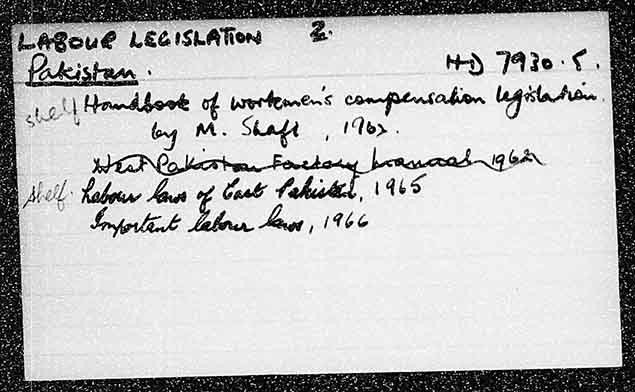 LABOUR LEGISLATION 2.
Pakistan. HD 7930.5.
shelf Handbook of workmen's compensation legislation.
by M. Shafi, 1962.
West Pakistan Factory manual 1962
shelf. Labour laws of East Pakistan, 1965
Important labour laws, 1966